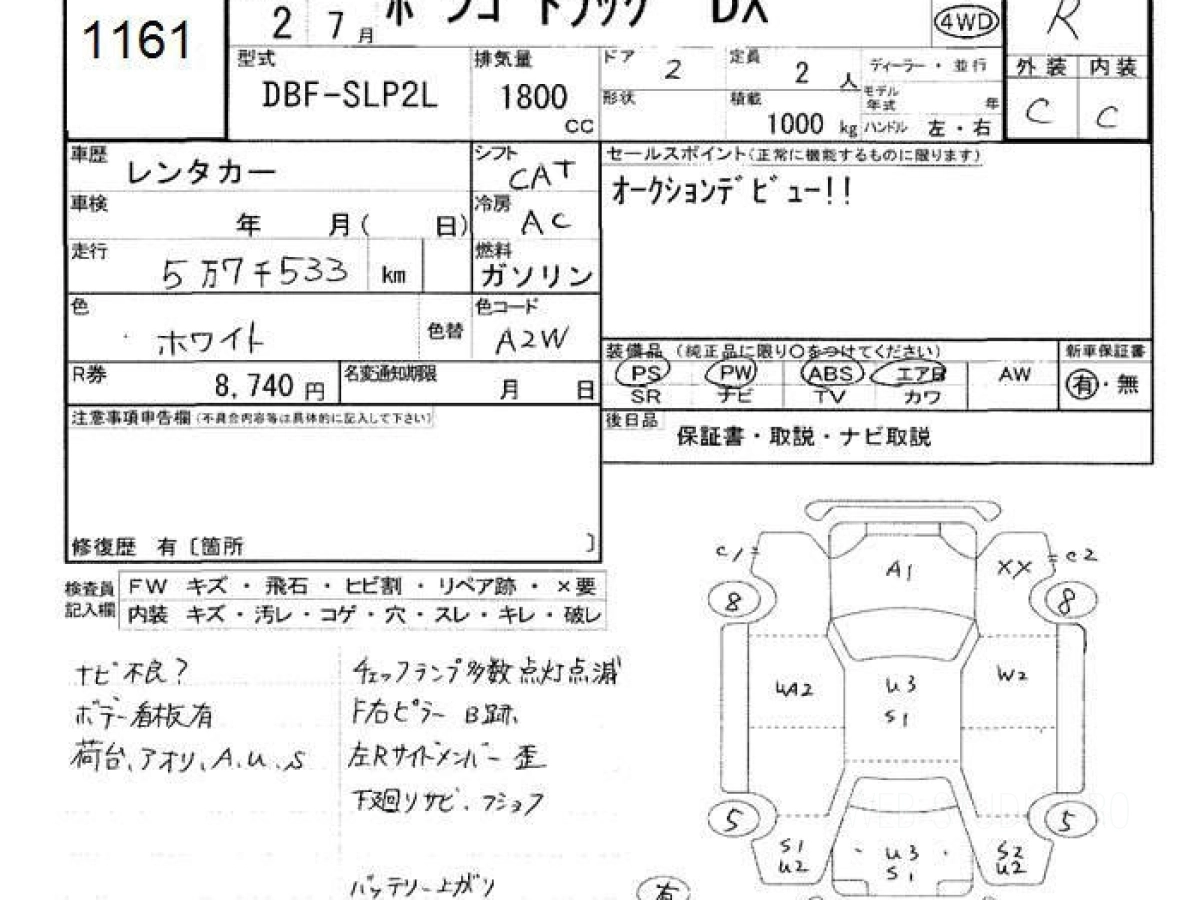 1161
2 7月 ボンゴトラック DX 4WD R
型式 DBF-SLP2L
排気量 1800 cc
ドア 2
定員 2 人
ディーラー・並行
形状
積載 1000 kg
モデル年式 年
ハンドル 左・右
外装 内装
C C
車歴 レンタカー
シフト CAT
セールスポイント(正常に機能するものに限ります)
オークションデビュー!!
車検 年 月( 日)
冷房 AC
走行 5万7千533 km
燃料 ガソリン
色 ホワイト
色替
色コード A2W
R券 8,740 円
名変通知期限 月 日
装備品 (純正品に限り○をつけてください)
新車保証書
PS PW ABS エアB AW
有・無
SR ナビ TV カワ
後日品 保証書・取説・ナビ取説
注意事項申告欄(不具合内容等は具体的に記入して下さい)
修復歴 有〔箇所 〕
検査員記入欄
FW キズ・飛石・ヒビ割・リペア跡・×要
内装 キズ・汚レ・コゲ・穴・スレ・キレ・破レ
ナビ不良?
ボデー看板有
荷台、アオリ、A.U.S
チェックランプ多数点灯点滅
右ピラー B跡、
左Rサイドメンバー歪
下廻リサビ、
バッテリー上がり
有
C1 A1 XX C2
8 8
UA2 U3 W2
S1
5 5
S1 U3 S2
U2 S1 U2